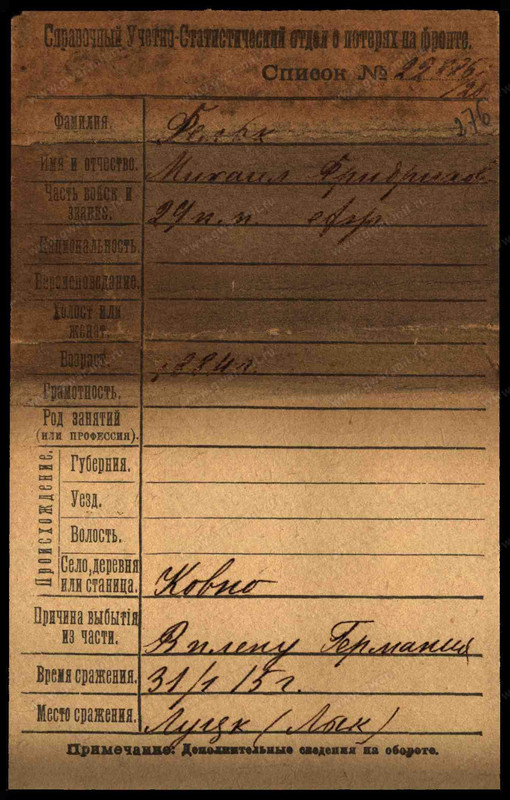 Справочный Учетно-Статистический отдел о потерях на фронте.
Список № 22876
/20
276
Фамилия.
Имя и отчество. Михаил Фридрихов.
Часть войск и звание. 29 п.п. ефр.
Национальность.
Вероисповедание.
Холост или женат.
Возраст. 1884 г.
Грамотность.
Род занятий (или профессия).
Происхождение.
Губерния.
Уезд.
Волость.
Село, деревня или станица. Ковно
Причина выбытія из части. В плену Германия
Время сражения. 31/1 15 г.
Место сражения. Луцк (Лык)
Примечание: Дополнительные сведения на обороте.